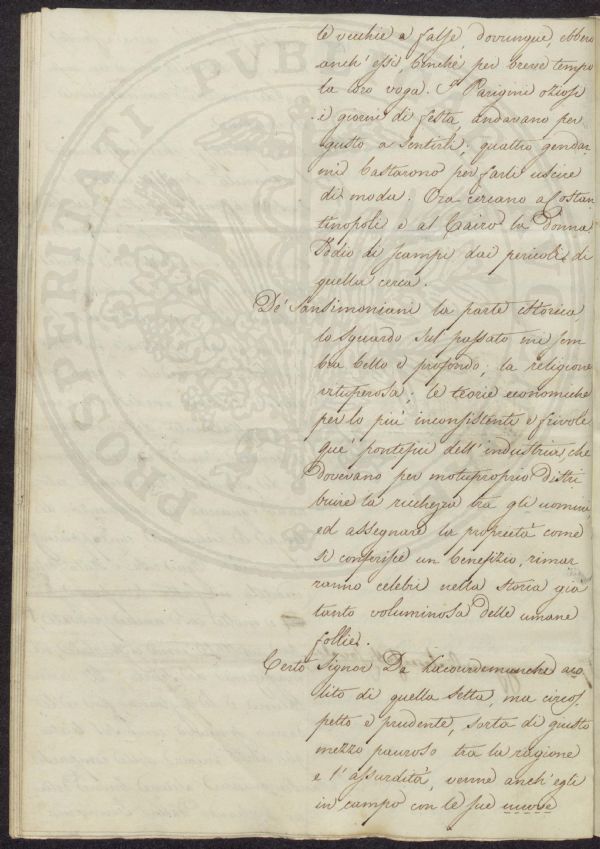 te vecchie a false, dovunque, ebbero
anch' essi, benchè per breve tempo
la loro voga. I Parigini oziosi
i giorni di festa andavano per
gusto a sentirli; quattro gendar
mi bastarono per farli uscire
di moda. Ora cercano a Costan
tinopoli e al Cairo la Donna
Iddio di scampi dai pericoli di
quella cerca.
De' Sansimoniani la parte istorica,
lo sguardo sul passato mi sem
bra bello e profondo; la religione
vituperosa; le teorie economiche
per lo più inconsistenti e frivole
que' pontefici dell' industria che
dovevano per motuproprio distri
buire la ricchezza tra gli uomini,
ed assegnare la proprietà come
si conferisce un benefizio, rimar
ranno celebri nella storia già
tanto voluminosa delle umane
follie.
Certo Signor De acco
lito di quella Setta, ma circo
spetto e prudente, sorta di giusto
mezzo pauroso tra la ragione
e l' assurdità, venne anch' egli
in campo con le sue nuove
PROSPERITATI PVBLICAE